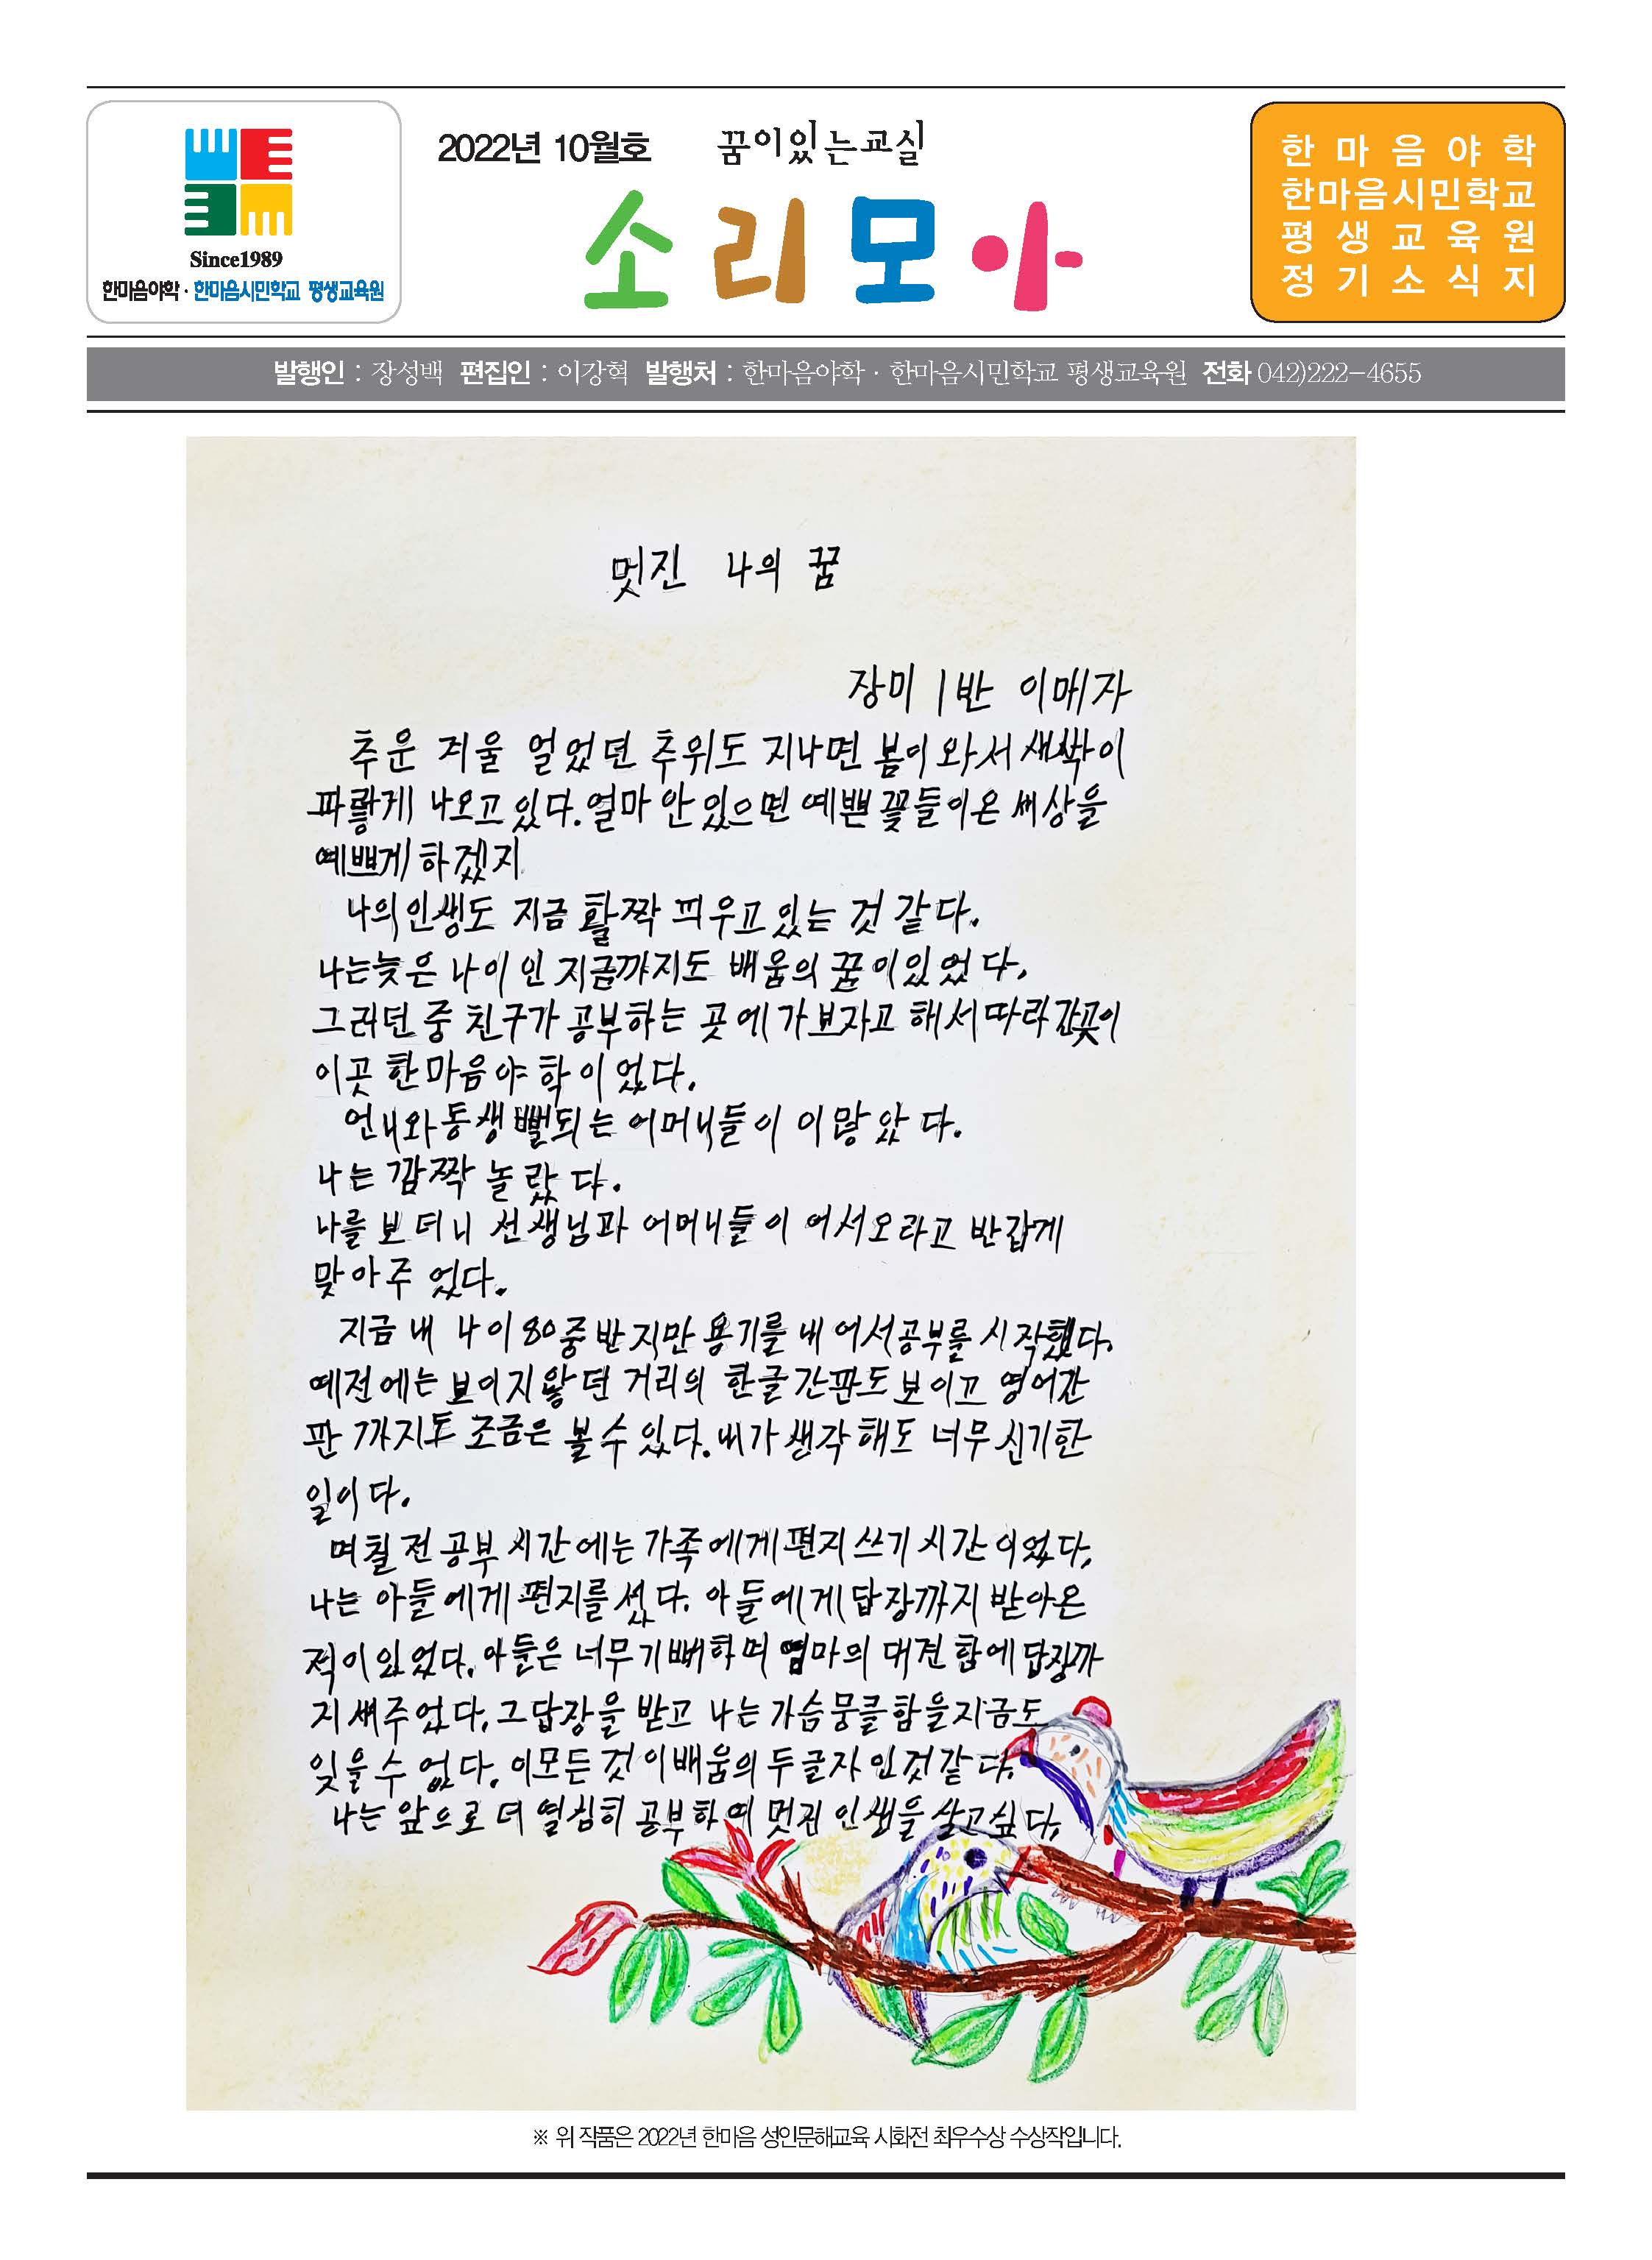 Since1989
한마음야학 · 한마음시민학교 평생교육원
2022년 10월호 꿈이있는교실
소리모아
한마음야학
한마음시민학교
평생교육원
정기소식지
발행인 : 장성백 편집인 : 이강혁 발행처 : 한마음야학 · 한마음시민학교 평생교육원 전화 042)222-4655
멋진 나의 꿈
장미 1반 이매자
추운 겨울 얼었던 추위도 지나면 봄이 와서 새싹이
파랗게 나오고 있다. 얼마 안 있으면 예쁜 꽃들이 온 세상을
예쁘게 하겠지
나의 인생도 지금 활짝 피우고 있는 것 같다.
나는 늦은 나이인 지금까지도 배움의 꿈이 있었다.
그러던 중 친구가 공부하는 곳에 가보자고 해서 따라 간곳이
이곳 한마음야학이었다.
언니와 동생뻘되는 어머니들이 이 많았다.
나는 깜짝 놀랐다.
나를 보더니 선생님과 어머니들이 어서오라고 반갑게
맞아주었다.
지금 내 나이 80중반지만 용기를 내어서 공부를 시작했다.
예전에는 보이지 않던 거리의 한글간판도 보이고 영어간
판까지도 조금은 볼 수 있다. 내가 생각해도 너무 신기한
일이다.
며칠 전 공부 시간에는 가족에게 편지쓰기 시간이었다.
나는 아들에게 편지를 썼다. 아들에게 답장까지 받아온
적이 있었다. 아들은 너무 기뻐하며 엄마의 대견함에 답장까
지 써주었다. 그 답장을 받고 나는 가슴 뭉클함을 지금도
잊을 수 없다. 이 모든 것이 배움의 두 글자인 것 같다.
나는 앞으로 더 열심히 공부하여 멋진 인생을 살고 싶다.
※ 위 작품은 2022년 한마음 성인문해교육 시화전 최우수상 수상작입니다.